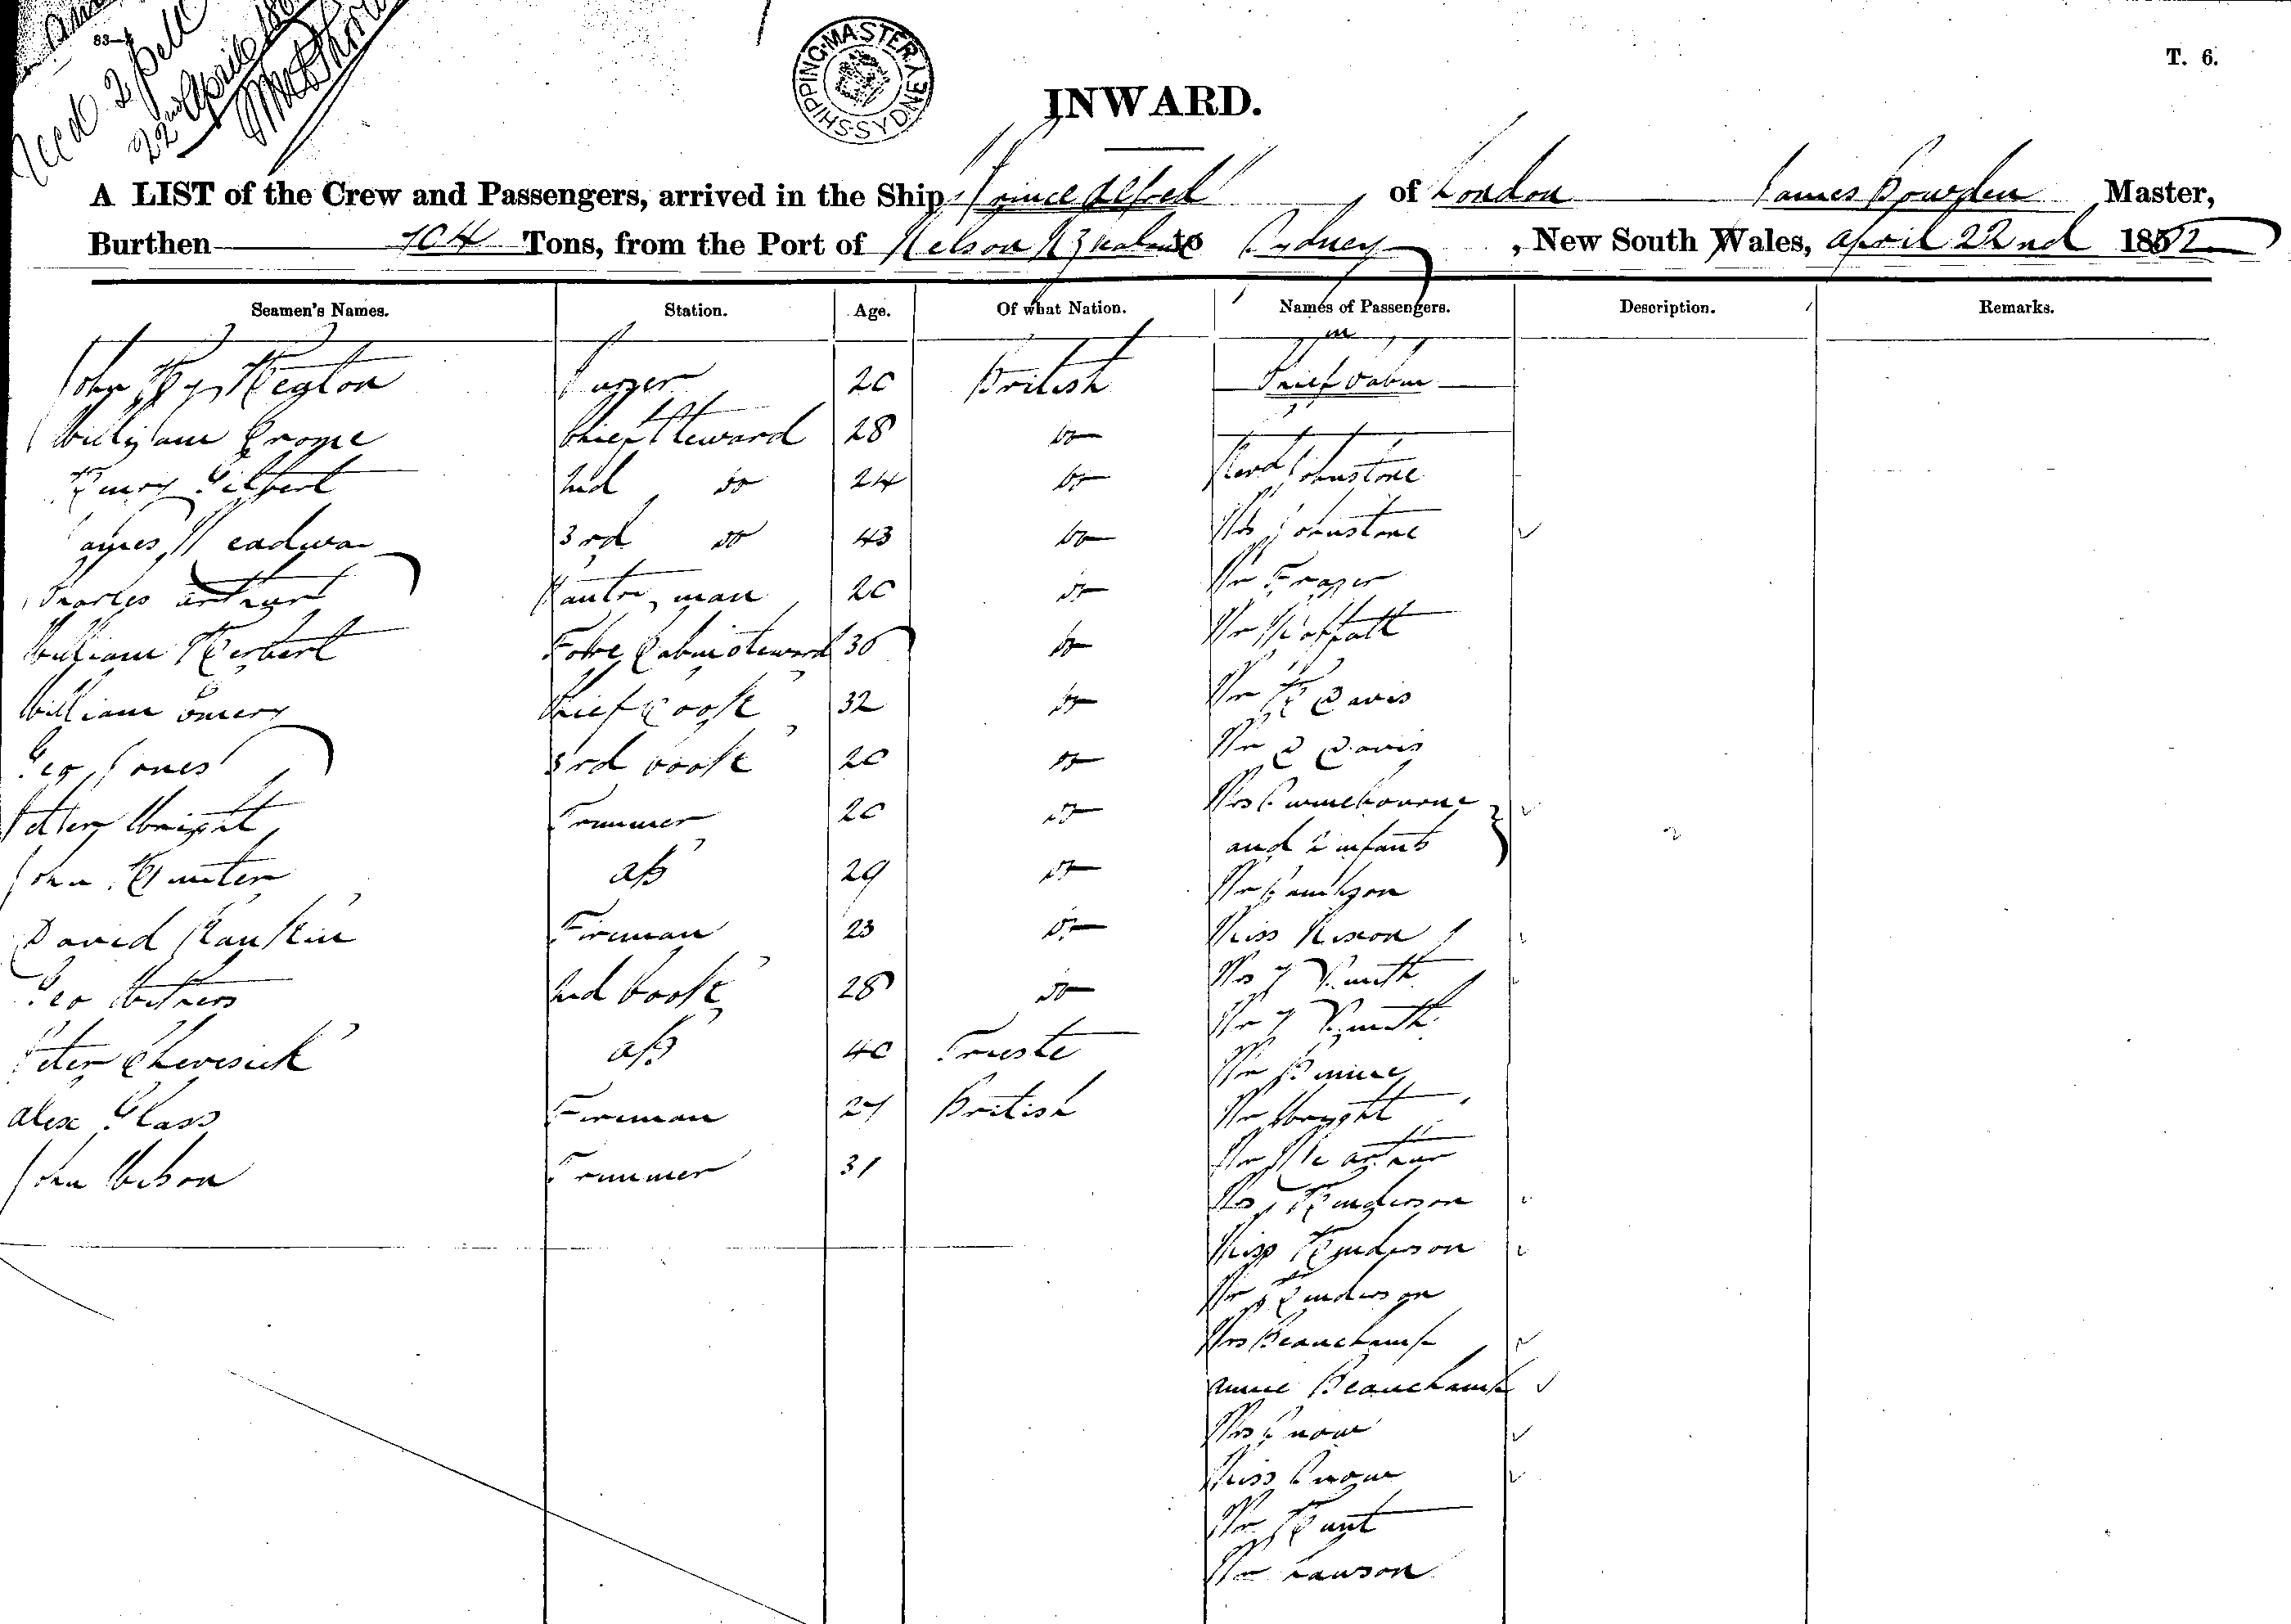 83—
Recd 2 pm
22nd April
SHIPPING MASTER SYDNEY
T. 6.
INWARD.
A LIST of the Crew and Passengers, arrived in the Ship Prince Alfred, of London James Bowden Master,
Burthen 704 Tons, from the Port of Nelson N Zealand to Sydney, New South Wales, April 22nd 186
Seamen's Names. Station. Age. Of what Nation. Names of Passengers. Description. Remarks.
in
John Hy Heylon Purser 20 British Chief Cabin
William Crome Chief Steward 28 Do
Henry Gilbert 2nd Do 24 Do Revd Johnstone
James Meadway 3rd Do 43 Do Mrs Johnstone
Charles Arthur Pantry man 20 Do Mr Frazer
William Herbert Fore Cabin Steward 30 Do Mr Moffatt
William Emery Chief Cook 32 Do Mr H Davis
Geo Jones 3rd Cook 20 Do Mr C Davis
Peter Wright Trimmer 20 Do Mrs
and 2 infants
John Hunter AB 29 Do Mr
David Rankin Fireman 23 Do Miss Nixon
Geo Withers 2nd Cook 28 Do Mrs J Smith
Mr J Smith
Peter Chevesick AB 40 Trieste Mr
Alex Glass Fireman 27 British Mr Wright
Mr McArthur
John Wilson Trimmer 31 Mrs Henderson
Miss Henderson
Mr Henderson
Mrs Beauchamp
Annie Beauchamp
Mrs Snow
Miss Snow
Mr Hunt
Mr Lawson